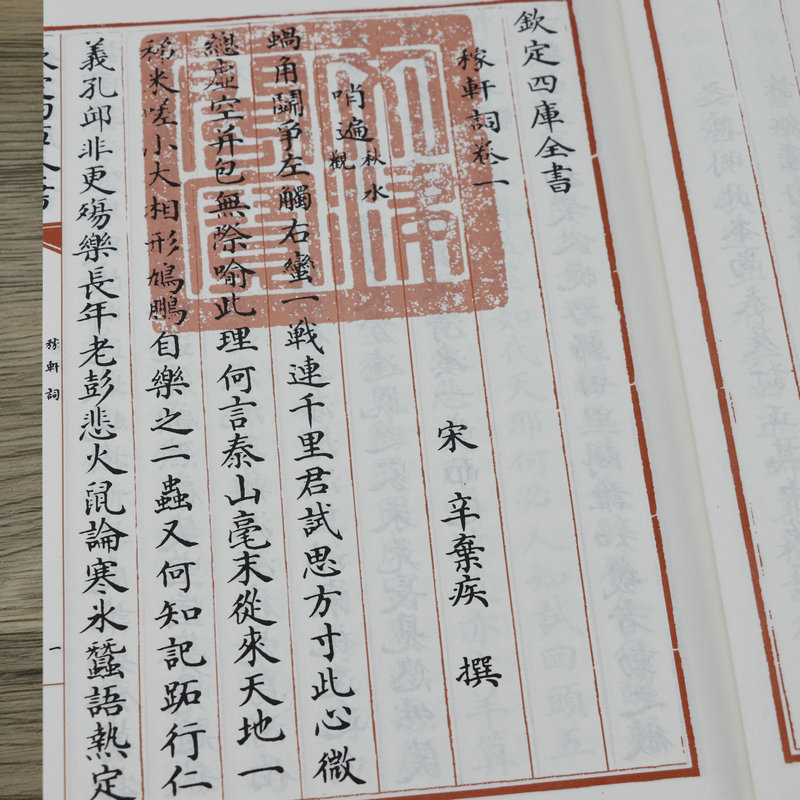 欽定四庫全書
稼軒詞卷一
宋 辛棄疾 撰
哨遍 秋水觀
蝸角鬭爭左觸右蠻一戰連千里君試思方寸此心微
總虛空并包無際喻此理何言泰山毫末從來天地一
稊米嗟小大相形鳩鵬自樂之二蟲又何知記跖行仁
義孔邱非更殤樂長年老彭悲火鼠論寒氷蠶語熱定
稼軒詞
一